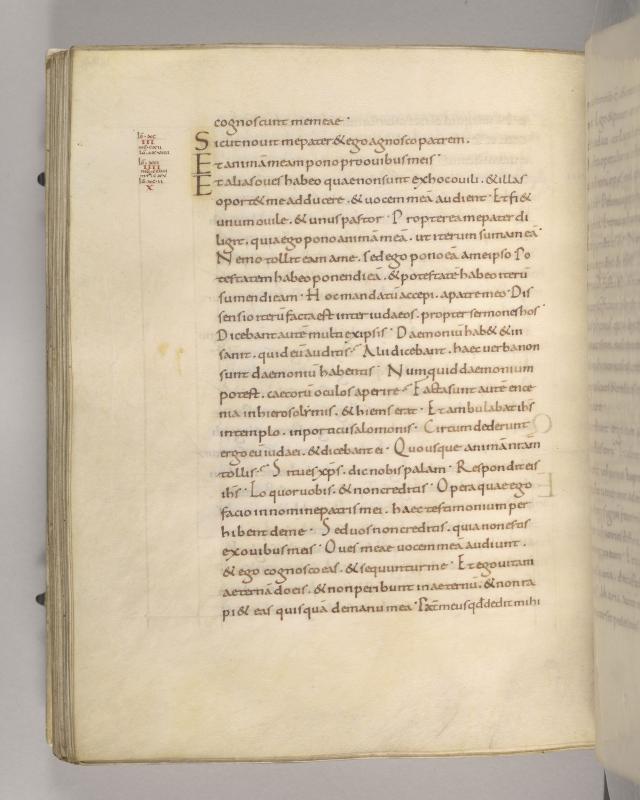 cognoscunt me meae ·
Sicut novit me pater & ego agnosco patrem.
Et animā meam pono pro ovibus meis ·
Et alias oves habeo quae non sunt ex hoc ovili . & illas
oport& me adducere . & vocem meā audient · Et fi&
unum ovile . & unus pastor · Propterea me pater di
ligit . quia ego pono animā meā . ut iterum sumam eā ·
Nemo tollit eam a me . sed ego pono eā a me ipso Po
testatem habeo ponendi eā . & potestatē habeo iterū
sumendi eam · Hoc mandatū accepi . a patre meo · Dis
sensio iterū facta est inter iudaeos . propter sermones hos ·
Dicebant autē multi ex ipsis · Daemoniū hab& & in
sanit . quid eū auditis · Alii dicebant . haec verba non
sunt daemoniū habentis · Numquid daemonium
potest . caecorū oculos aperire · Facta sunt autē ence
nia in hierosolymis . & hiems erat · Et ambulabat ihs
in templo . in porticu salomonis · Circumdederunt
ergo eū iudaei . & dicebant ei · Quousque animā nrām
tollis · Si tu es xp̄s . dic nobis palam · Respondit eis
ihs · Loquor vobis . & non creditis · Opera quae ego
facio in nomine patris mei . haec testimonium per
hibent de me · Sed vos non creditis . quia non estis
ex ovibus meis · Oves meae vocem meā audiunt .
& ego cognosco eas . & sequuntur me · Et ego vitam
aeternā do eis . & non peribunt in aeternū . & non ra
pi& eas quisquā de manu mea · Pat̄ meus qđ dedit mihi